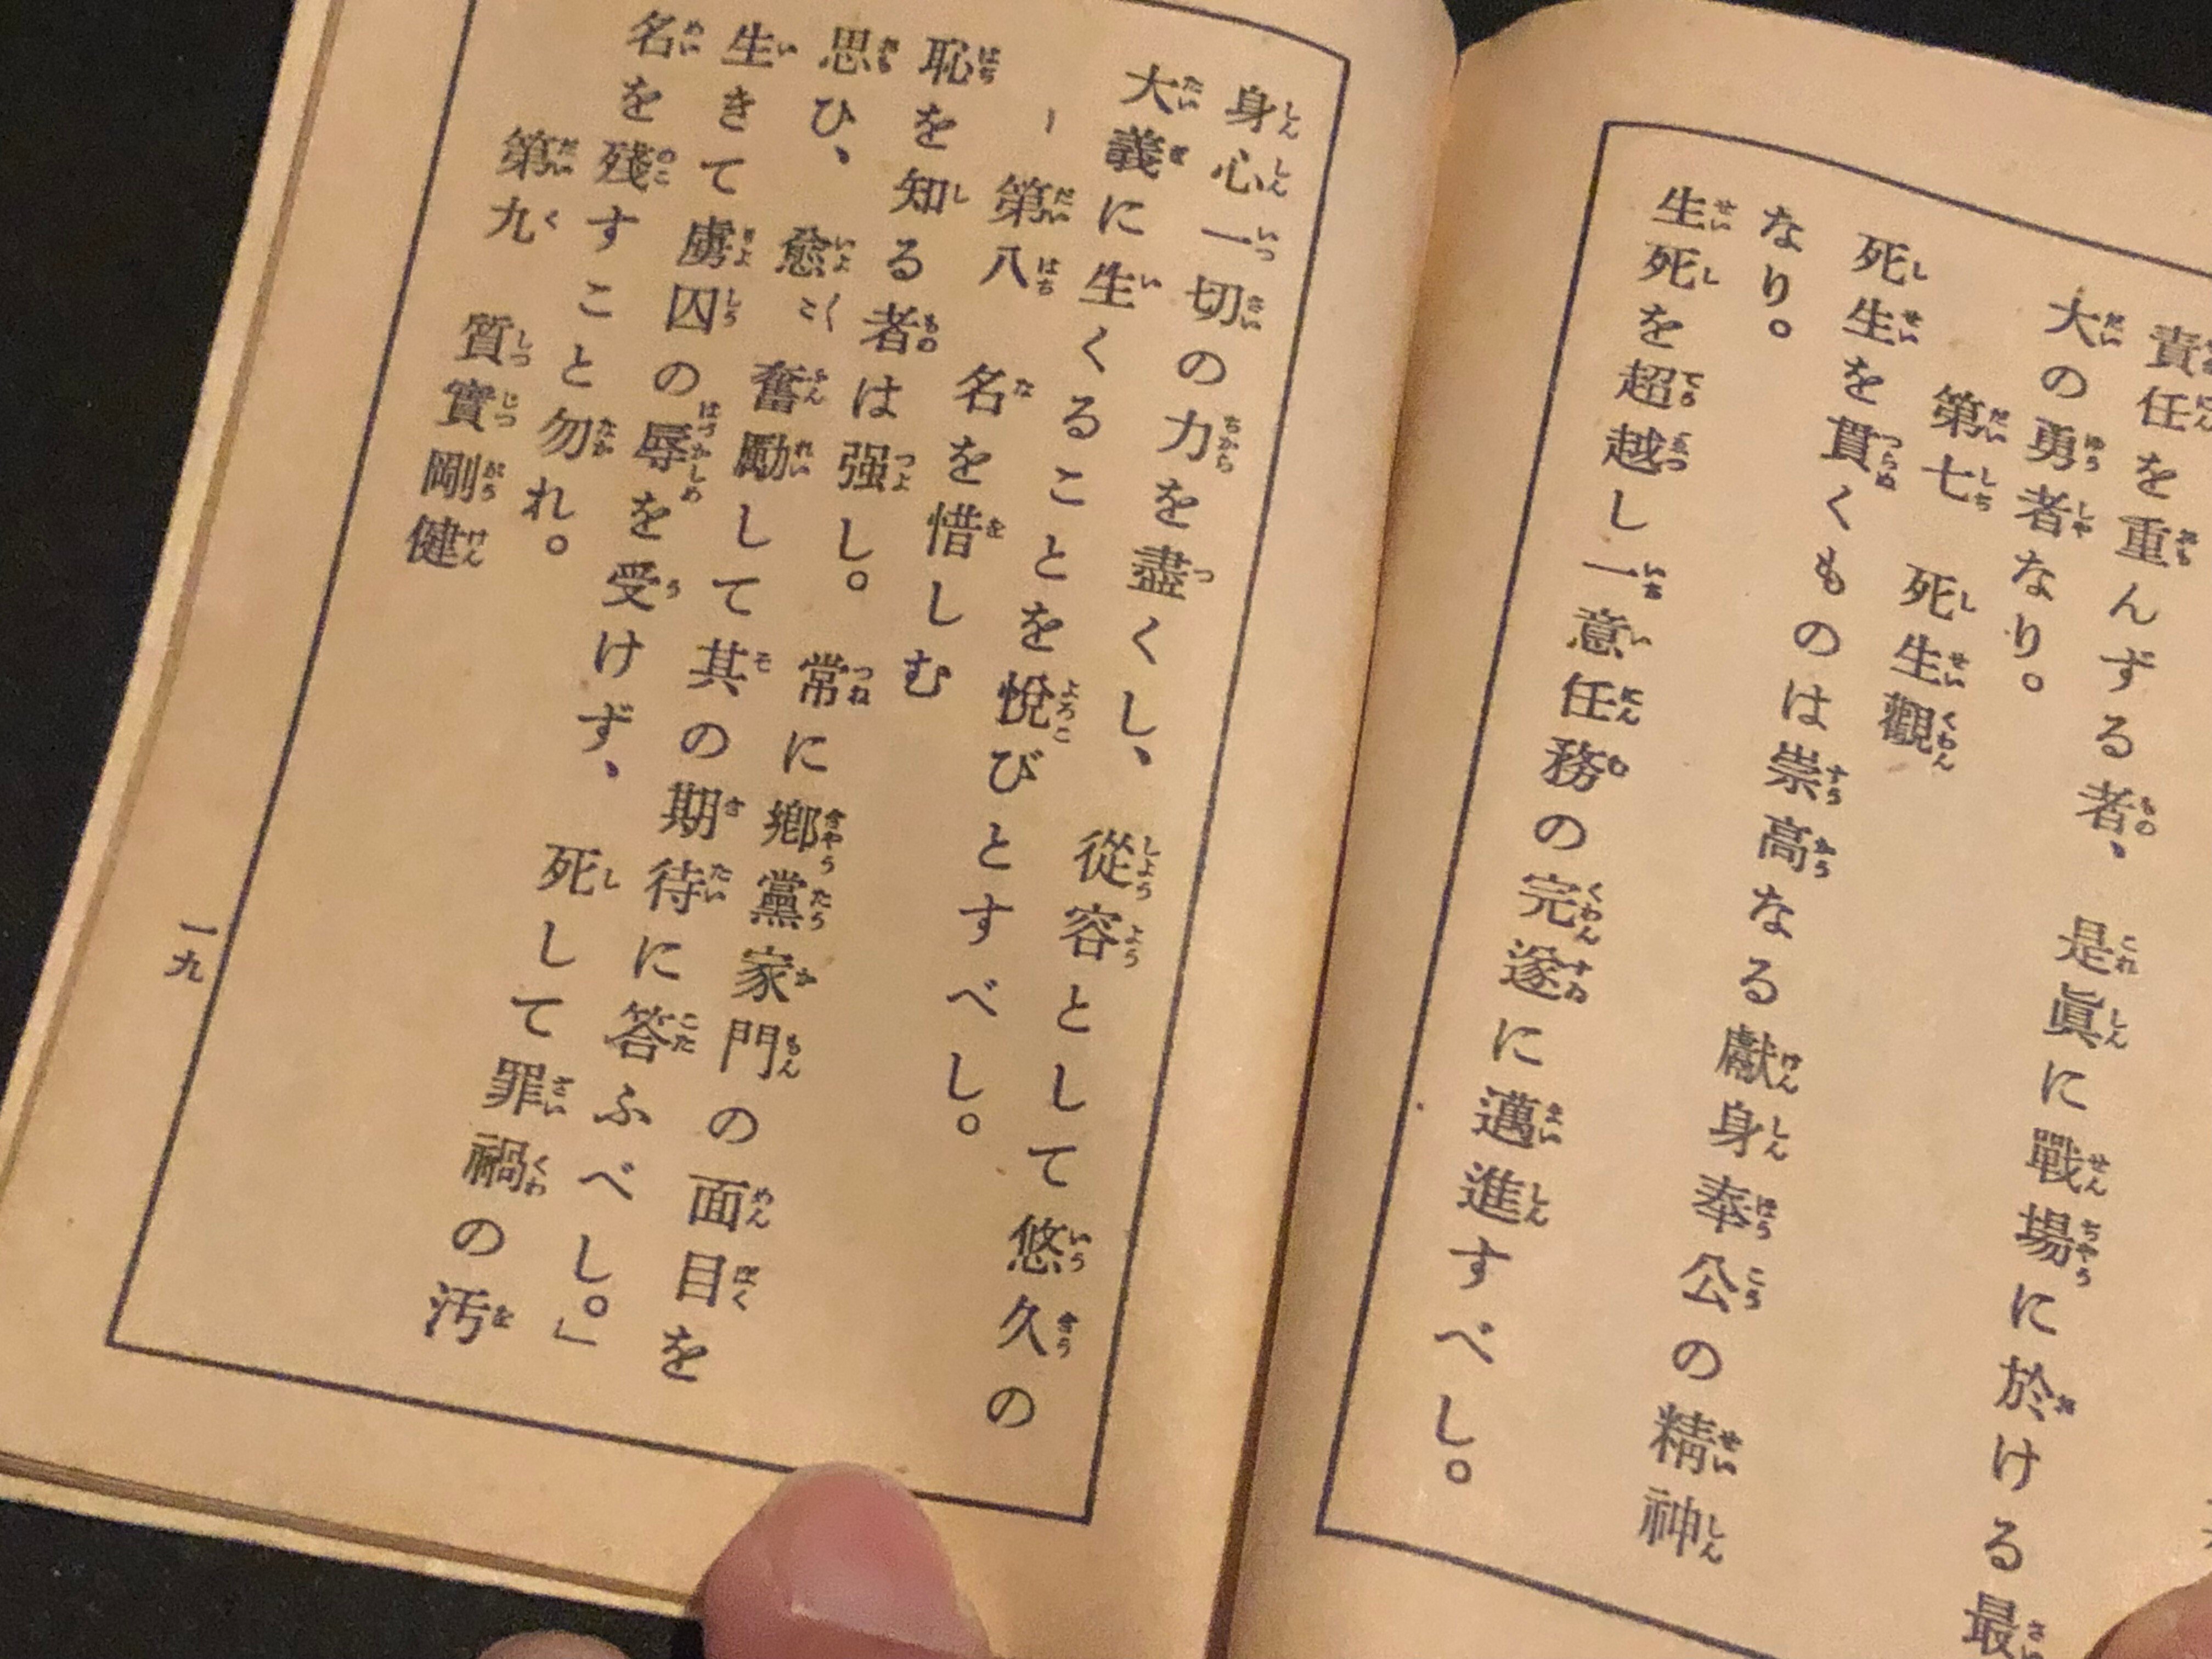 責任を重んずる者、是眞に戰場に於ける最
大の勇者なり。
第七　死生觀
死生を貫くものは崇高なる獻身奉公の精神
なり。
生死を超越し一意任務の完遂に邁進すべし。
身心一切の力を盡くし、從容として悠久の
大義に生くることを悅びとすべし。
第八　名を惜しむ
恥を知る者は强し。常に鄕黨家門の面目を
思ひ、愈〻奮勵して其の期待に答ふべし。」
生きて虜囚の辱を受けず、死して罪禍の汚
名を殘すこと勿れ。
第九　質實剛健
一九